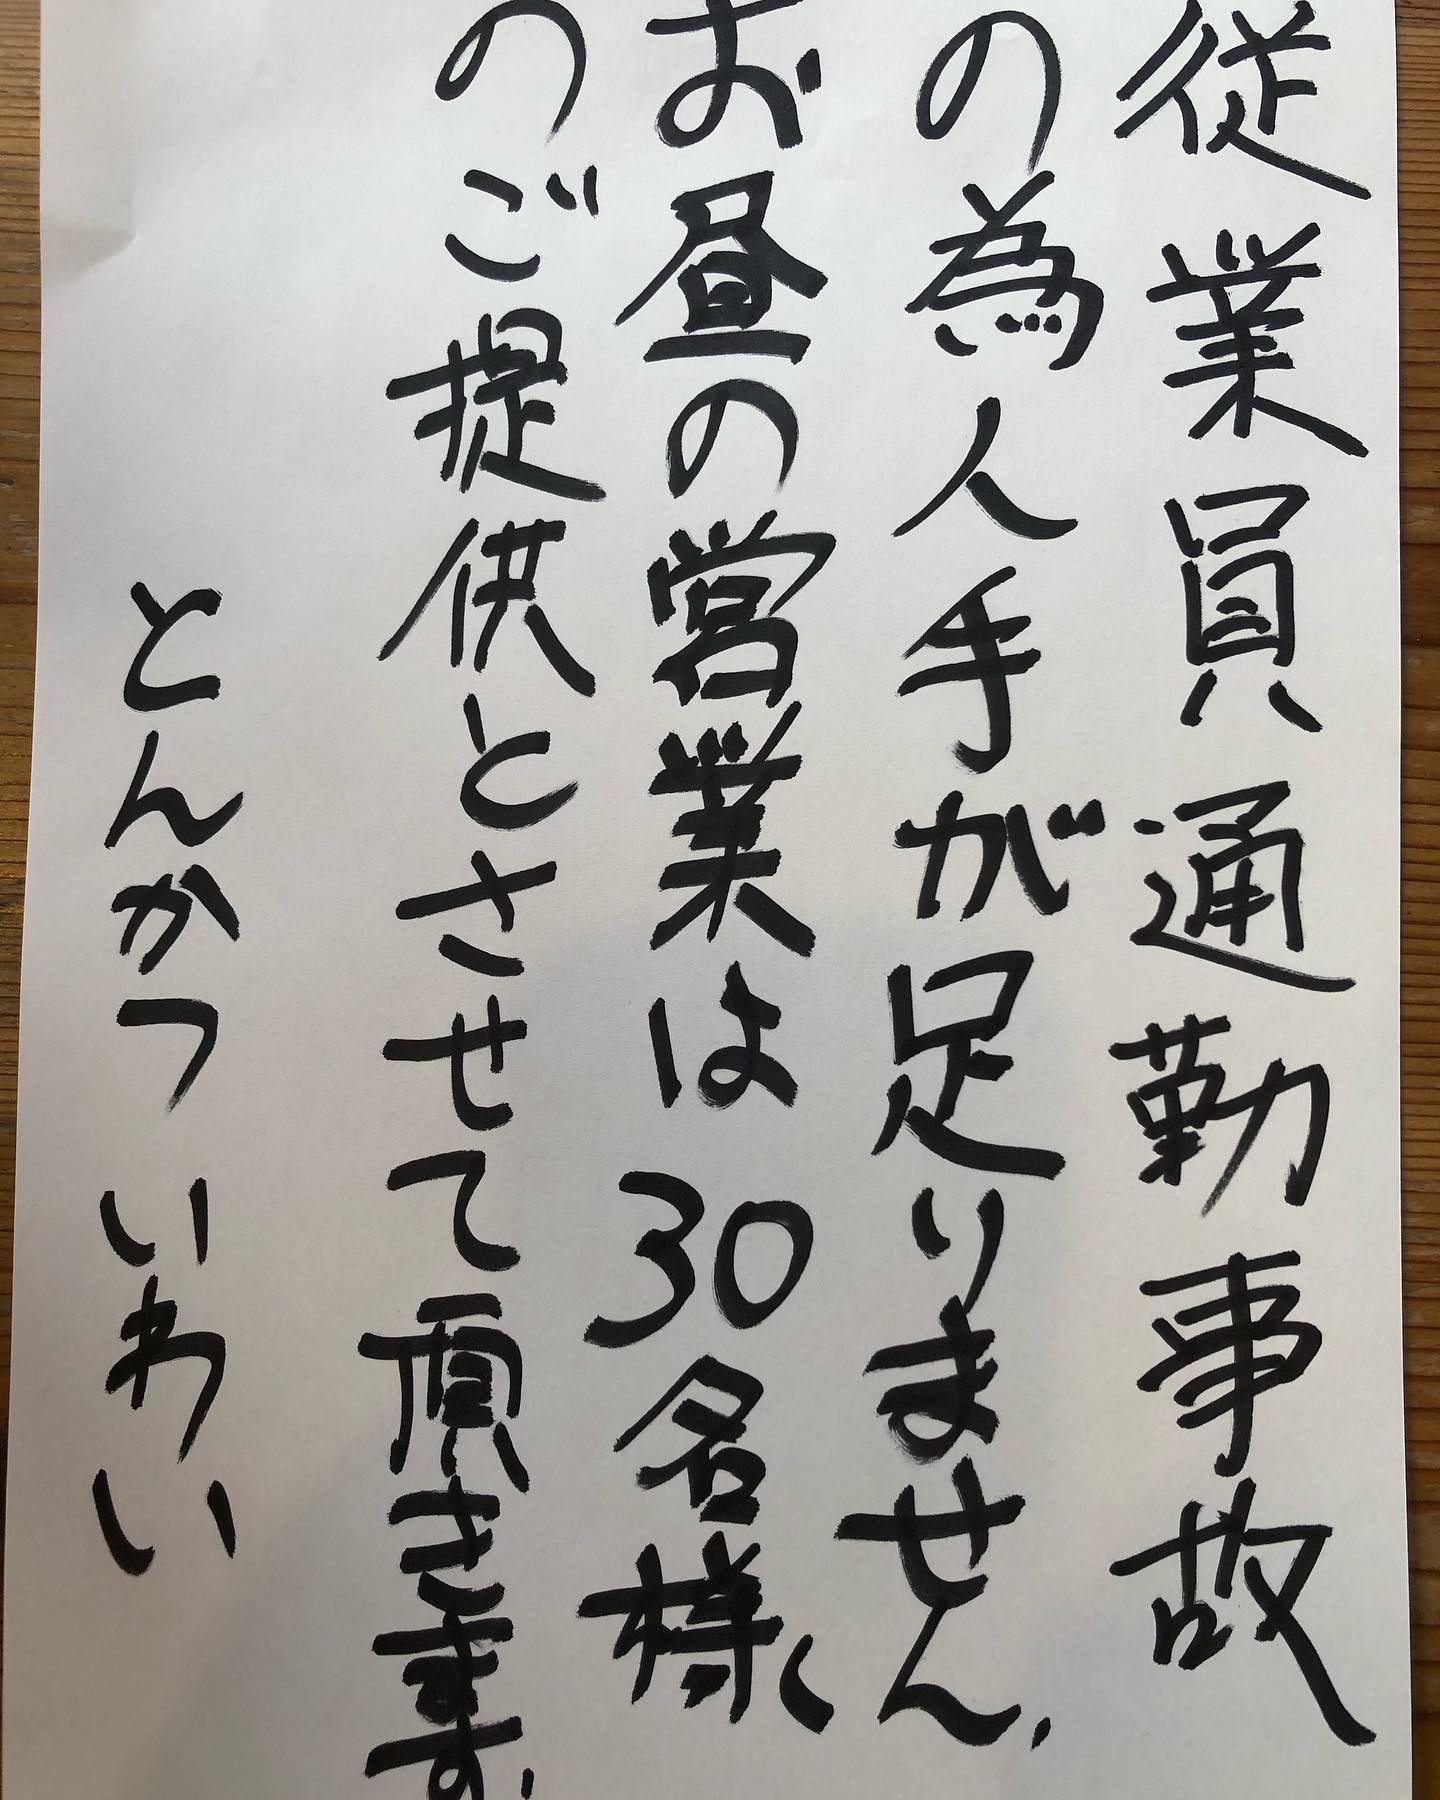 従業員通勤事故
の為人手が足りません.
お昼の営業は30名様
のご提供とさせて頂きます.
とんかつ いわい